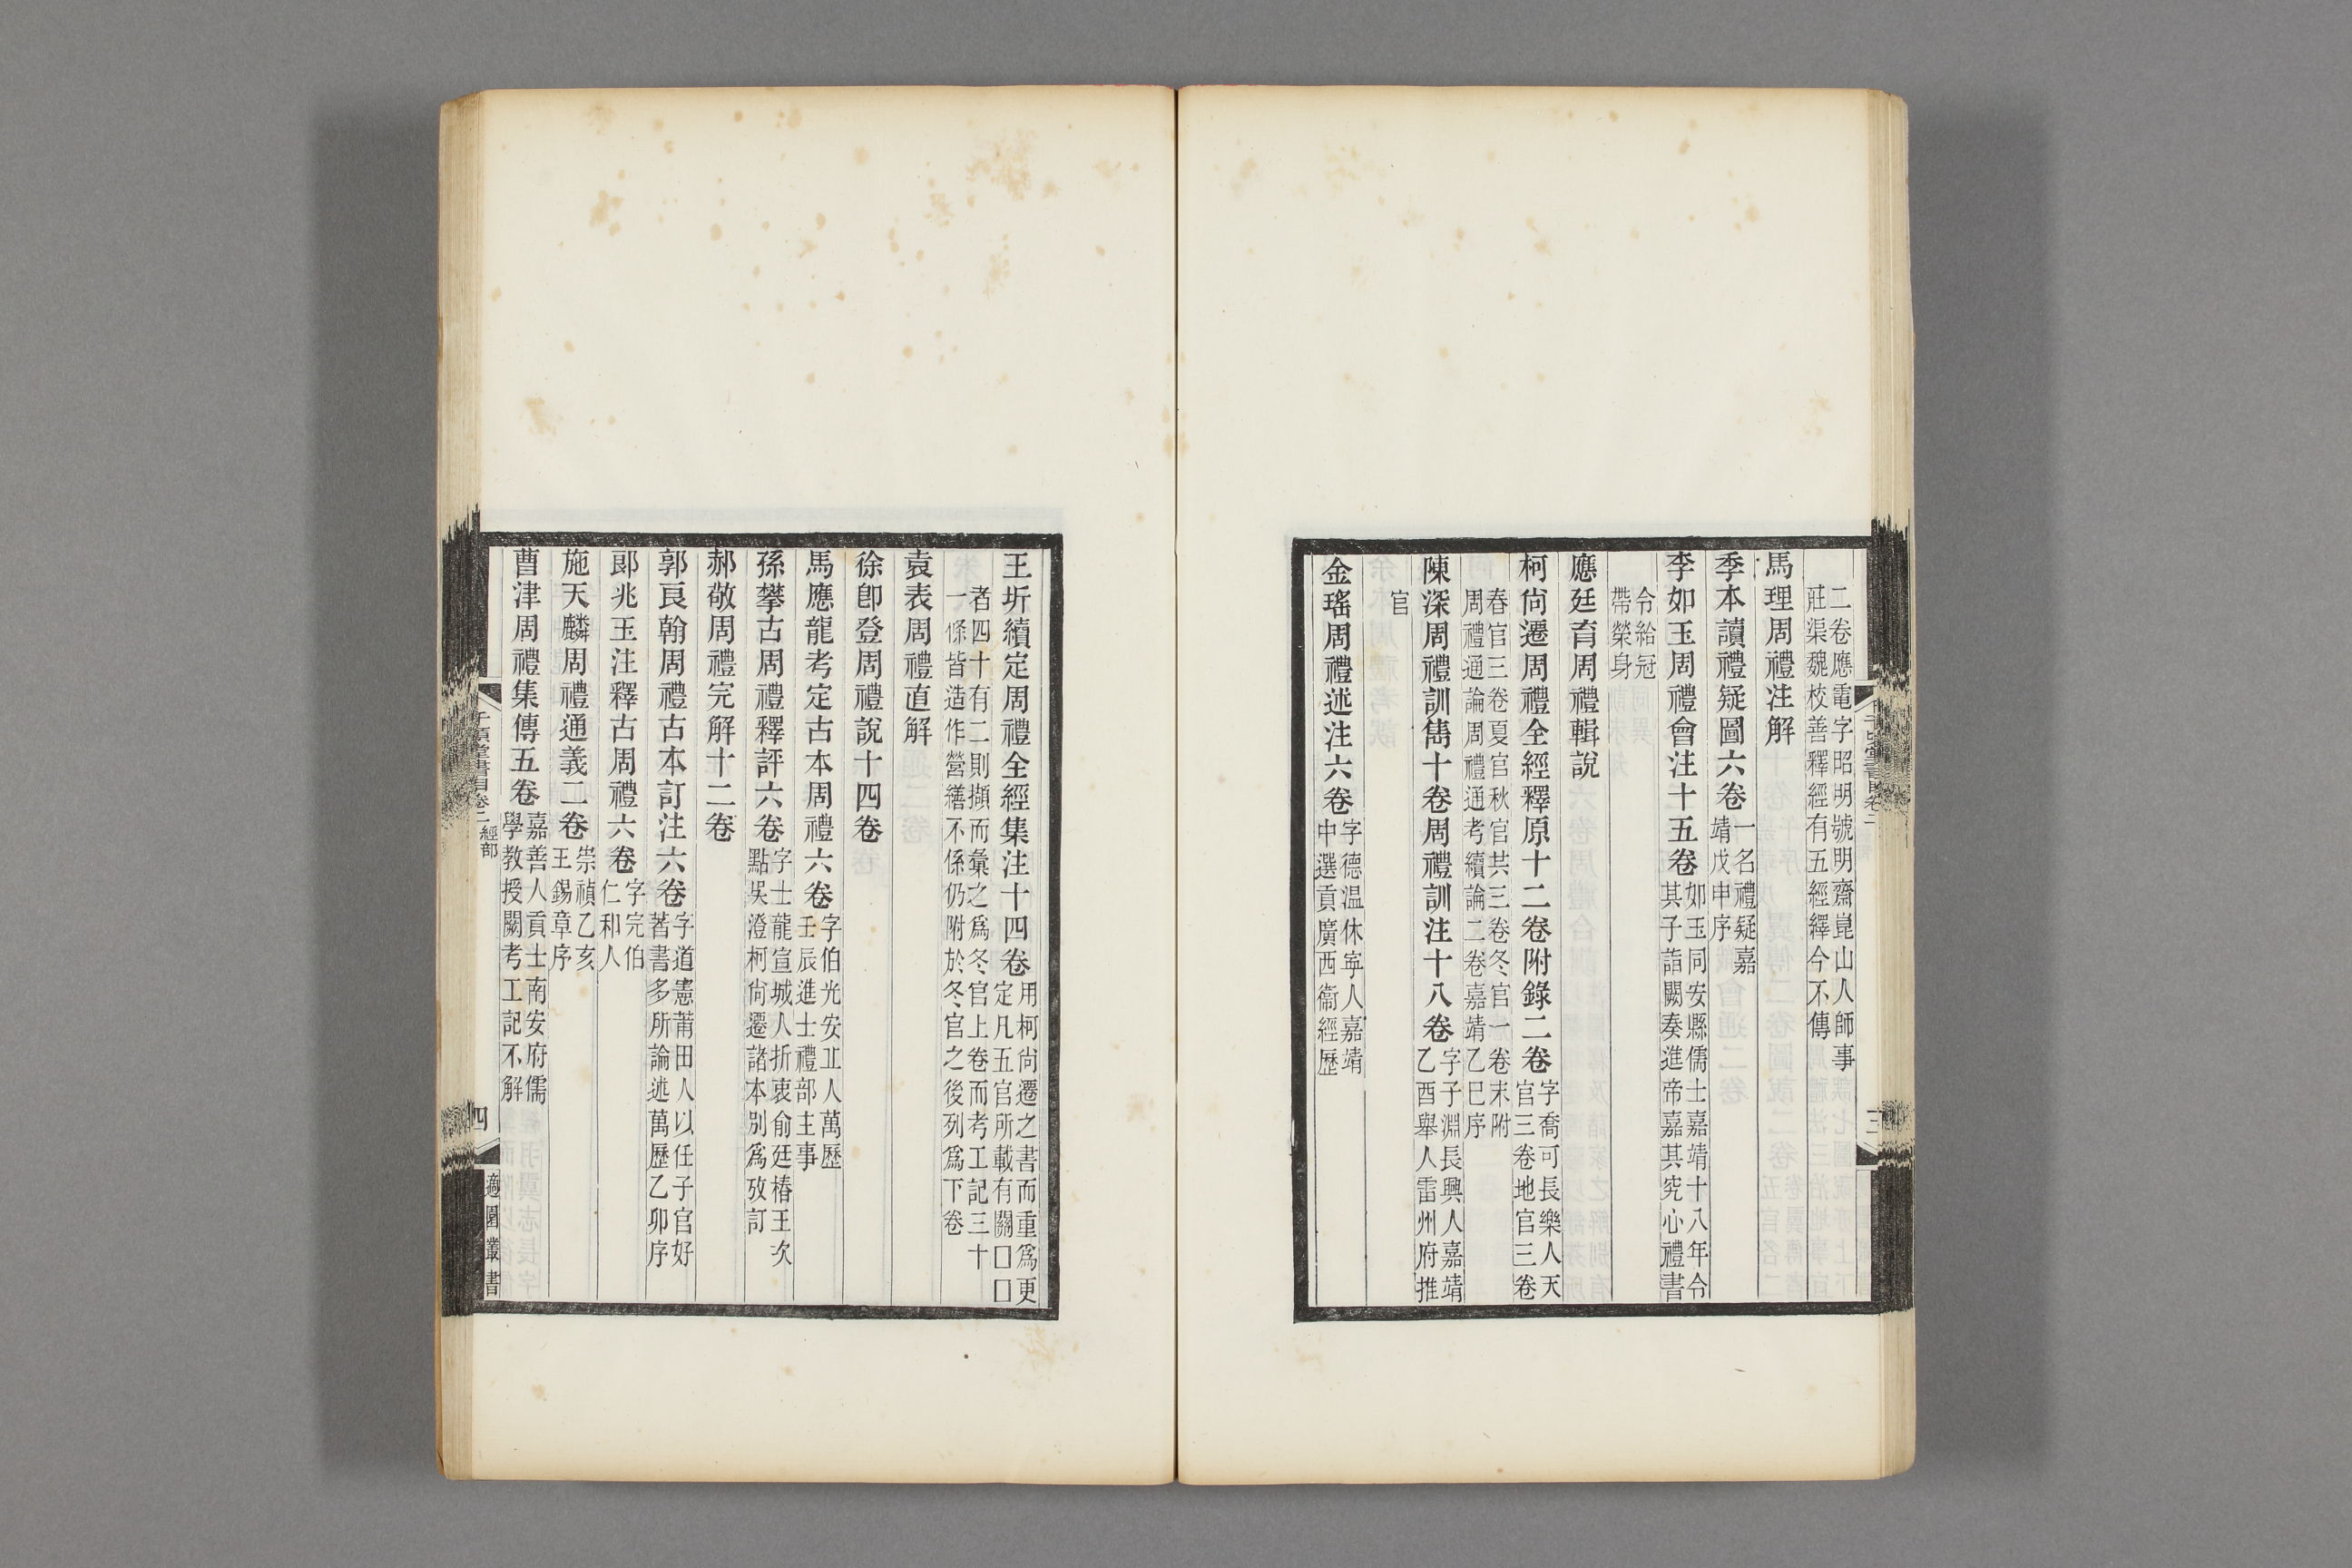 二卷應電字昭明號明齋崑山人師事
莊渠魏校善釋經有五經繹今不傳
馬理周禮注解
季本讀禮疑圖六卷一名禮疑嘉
靖戊申序
李如玉周禮會注十五卷如玉同安縣儒士嘉靖十八年令
其子詣闕奏進帝嘉其究心禮書
令給冠
帶榮身
應廷育周禮輯說
柯尙遷周禮全經釋原十二卷附錄二卷字喬可長樂人天
官三卷地官三卷
春官三卷夏官秋官共三卷冬官一卷末附
周禮通論周禮通考續論二卷嘉靖乙巳序
陳深周禮訓雋十卷周禮訓注十八卷字子淵長興人嘉靖
乙酉舉人雷州府推
官
金瑤周禮述注六卷字德温休寧人嘉靖
中選貢廣西衞經歴
三
王圻續定周禮全經集注十四卷用柯尙遷之書而重爲更
定凡五官所載有關囗囗
者四十有二則擷而彙之爲冬官上卷而考工記三十
一條皆造作營繕不係仍附於冬官之後列爲下卷
袁表周禮直解
徐卽登周禮說十四卷
馬應龍考定古本周禮六卷字伯光安丘人萬歷
壬辰進士禮部主事
孫攀古周禮釋評六卷字士龍宣城人折衷俞廷椿王次
點吳澄柯尙遷諸本别爲攷訂
郝敬周禮完解十二卷
郭良翰周禮古本訂注六卷字道憲莆田人以任子官好
著書多所論述萬歷乙卯序
郞兆玉注釋古周禮六卷字完伯
仁和人
施天麟周禮通義二卷崇禎乙亥
王錫章序
曹津周禮集傳五卷嘉善人貢士南安府儒
學教授闕考工記不解
千頃堂書目卷二經部
四
適園叢書